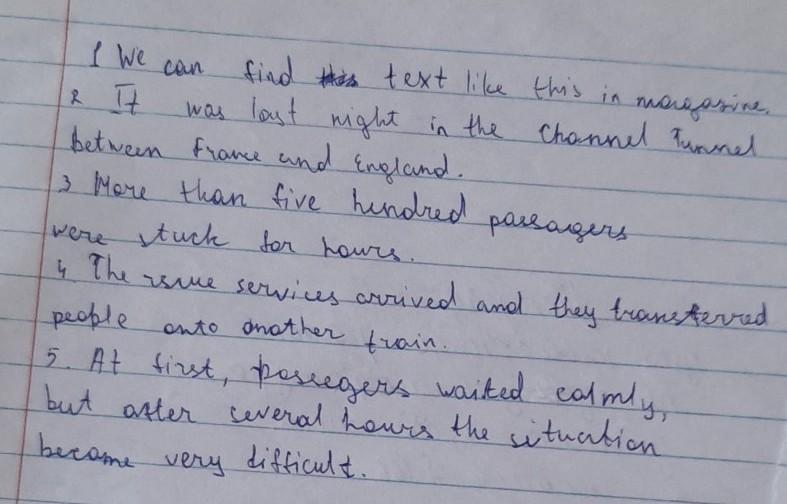 1 We can find this text like this in margarine.
2 It was last night in the Channel Tunnel
between France and England.
3 More than five hundred passagers
were stuck for hours.
4 The rsue services arrived and they transferred
people onto another train.
5. At first, passegers waited calmly,
but after several hours the situation
became very difficult.